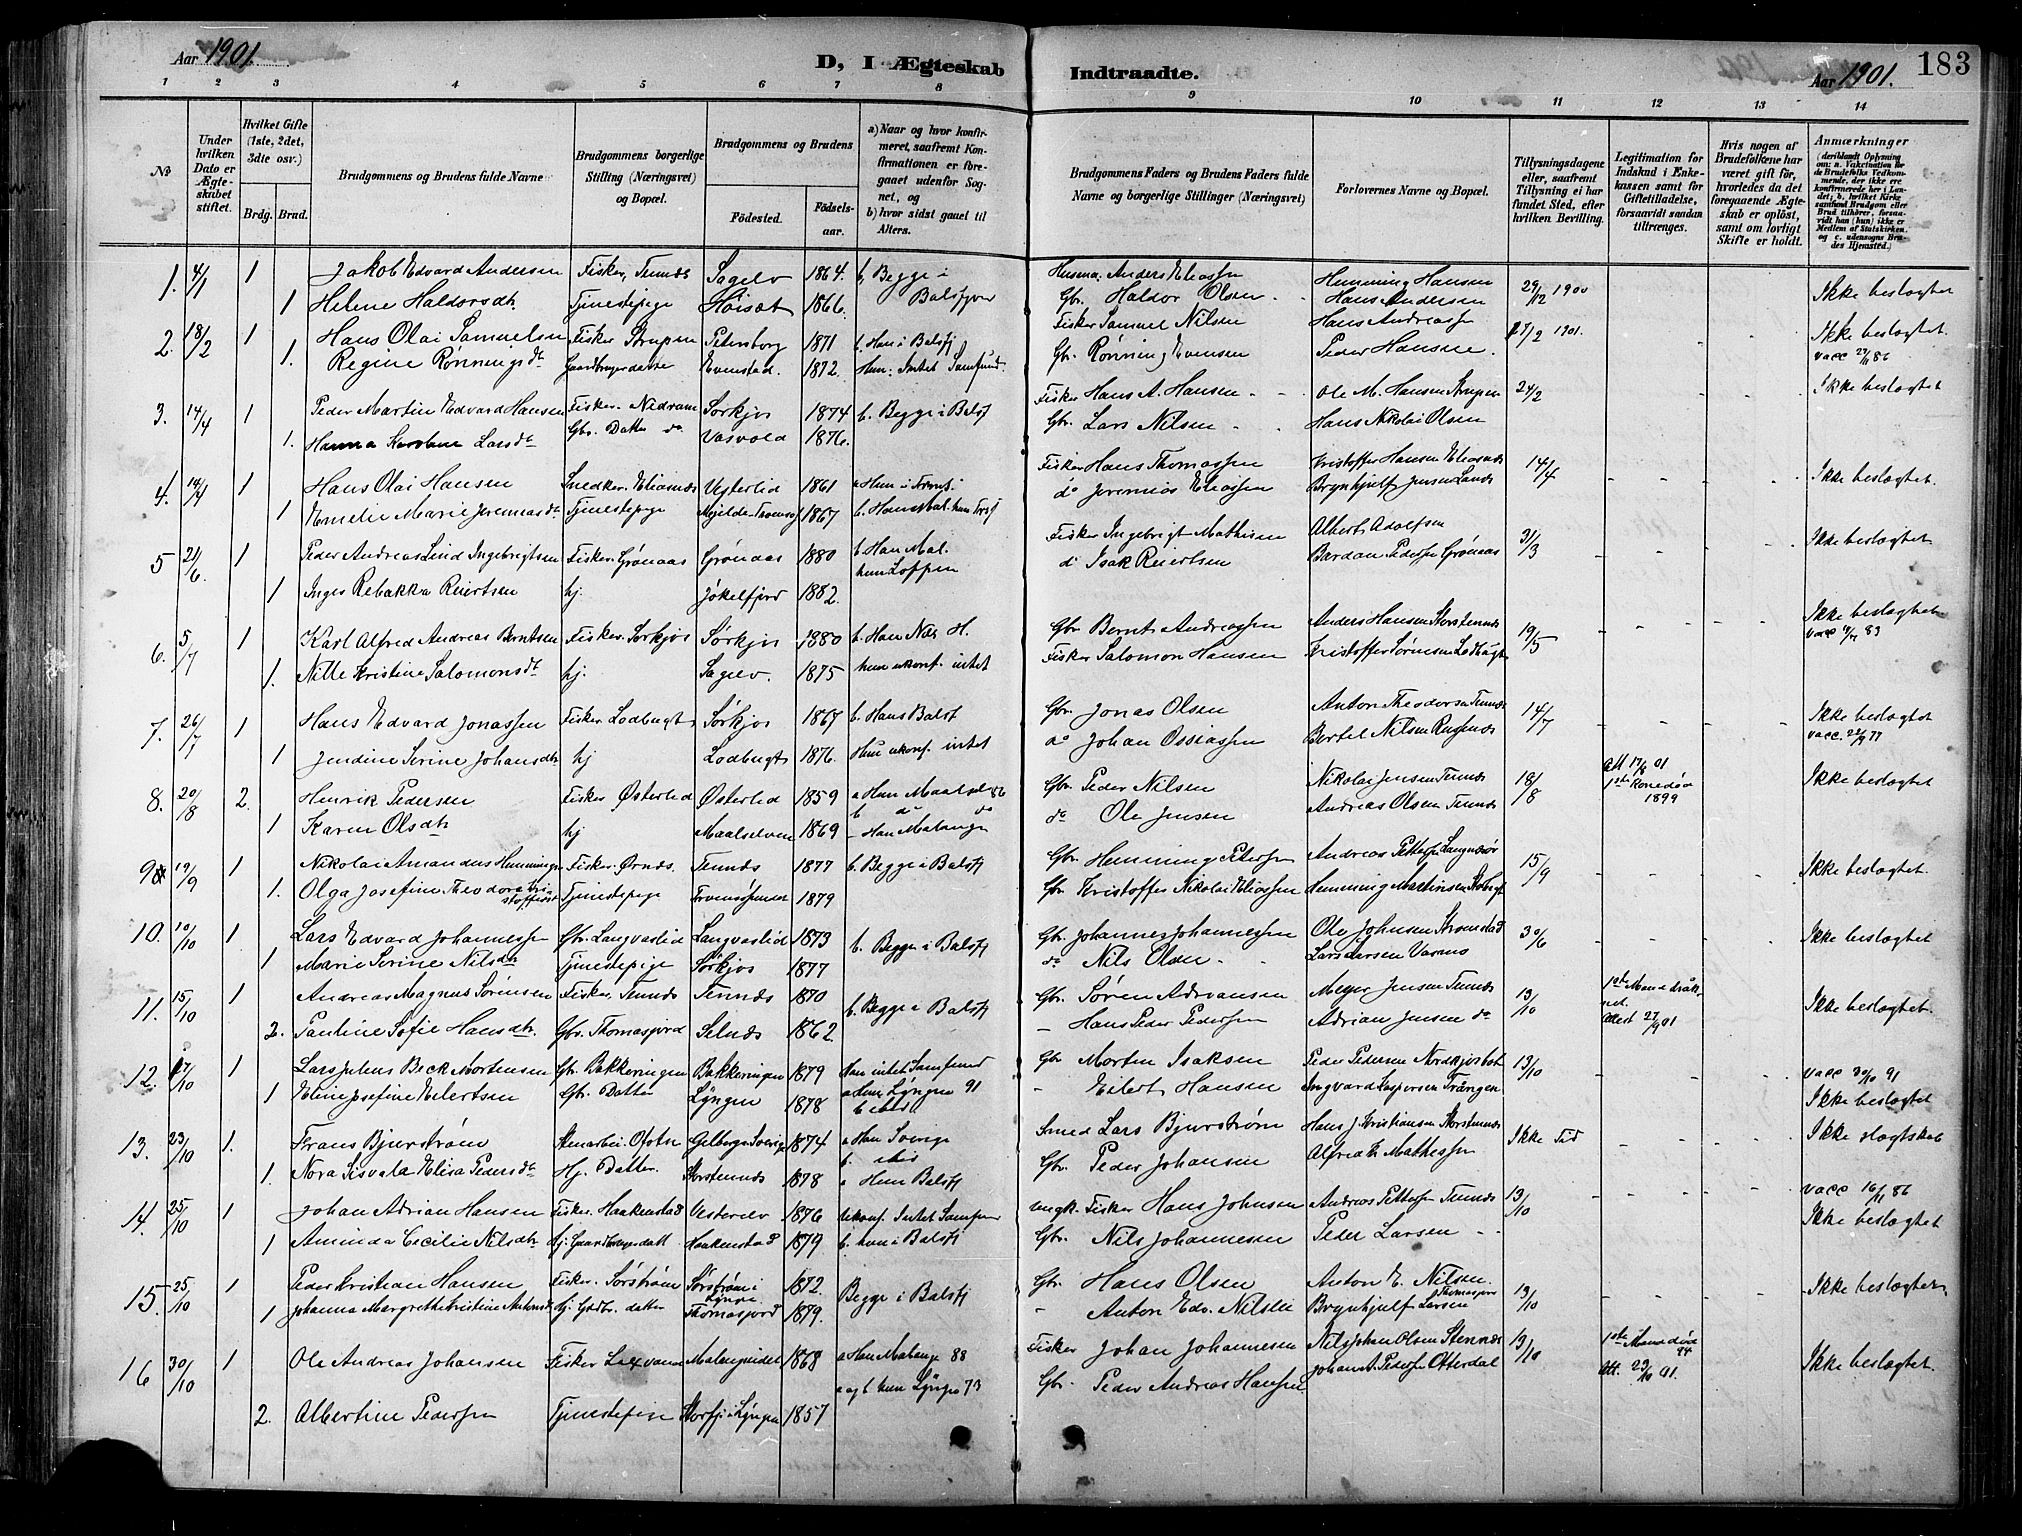 Aar 1901.
D, I Ægteskab Indtraadte.
Aar 1901.
183
1 2 3 4 5 6 7 8 9 10 11 12 13 14
No
Under hvilken Dato er Ægteskabet stiftet.
Hvilket Gifte (1ste, 2det, 3die osv.)
Brdg. Brud.
Brudgommens og Brudens fulde Navne
Brudgommens borgerlige Stilling (Næringsvei) og Bopæl.
Brudgommens og Brudens
Fødested. Fødselsaar.
a) Naar og hvor konfirmeret, saafremt Konfirmationen er foregaaet udenfor Sognet, og
b) hvor sidst gaaet til Alters.
Brudgommens Faders og Brudens Faders fulde Navne og borgerlige Stillinger (Næringsvei)
Forlovernes Navne og Bopæl.
Tillysningsdagene eller, saafremt Tillysning ei har fundet Sted, efter hvilken Bevilling.
Legitimation for Indskud i Enkekassen samt for Giftetilladelse, forsaavidt saadan tiltrænges.
Hvis nogen af Brudefolkene har været gift før, hvorledes da det foregaaende Ægteskab er opløst, samt om lovligt Skifte er holdt.
Anmærkninger
(deriblandt Oplysning om: a. Vakcination for de Brudefolks Vedkommende, der ikke ere konfirmerede her i Landet; b. hvilket Kirkesamfund Brudgom eller Brud tilhører, forsaavidt han (hun) ikke er Medlem af Statskirken, og c. udensogns Brudes Hjemsted.)
1. 4/1 1 Jakob Edvard Andersen Fisker, Tennes Sagelv 1864. b, Begge i Husm. Anders Eliassen Hemming Hansen 29/12 1900 Ikke beslægtet
1 Helene Haldorsdtr Tjenestepige Høisæt 1866. Balsfjord Gbr. Haldor Olsen Hans Andersen
2. 18/2 1 Hans Olai Samuelsen Fisker Strupen Petersborg 1871 b. Han i Balsfj Fisker Samuel Nilsen Hans Andreassen 17/2 1901. Ikke beslægtet.
1. Regine Rønningsdt Gaardbrugerdatter Evenstad. 1872. Hun: Intet Samfund. Gbr. Rønning Evensen Peder Hansen. vacc 29/11 86
3. 14/4 1 Peder Martin Edvard Hansen Fisker. Nedram Sørkjos 1874 b. Begge i Balsfj Fisker Hans A. Hansen Ole M. Hansen Strupen 24/2 Ikke beslægtet
1. Hanna Karoline Larsdt Gbr. Datter do Vasvold 1876. Gbr. Lars Nilsen Hans Nikolai Olsen
4. 14/4 1 Hans Olai Hansen Snedker. Eliasnæs Vesterlid 1861 Fisker Hans Thomassen Kristoffer Hansen Eliasnæs 14/4 Ikke beslægtet.
1 Emelie Marie Jeremiasdt Tjenestepige 1867 do Jeremias Eliassen Brynhjulf Jensen
5 21/6. 1 Peder Andreas Lind Ingebrigtsen Fisker. Grønaas Grønaas 1880 b. Han Mal. Fisker Ingebrigt Mathisen Albert Adolfsen 31/3 Ikke beslægtet
1 Inger Rebakka Reiertsen hj. Jøkelfjord 1882. hun Loppen do Isak Reiertsen Bardon Pedersen Grønaas
6. 5/7 1 Karl Alfred Andreas Berntsen Fisker. Sørkjos Sørkjos 1880 b. Han Gbr Bernt Andreassen Anders Hansen Storstennes 19/5 Ikke beslægtet
1. Nille Kristine Salomonsdt hj. Sagelv. 1875 hun ukonf. intet Fisker Salomon Hansen Kristoffer Sørensen Lodbugt vacc 83
7. 26/7 1 Hans Edvard Jonassen Fisker. Lodbugt Sørkjos 1867 b. Hans Balsf Gbr. Jonas Olsen Anton Tennes 14/7 Ikke beslægtet
1 Jendine Serine Johansdtr hj Lodbugt 1876. Hun ukonf. intet do Johan Ossiassen Bertel Nilsen vacc. 77
8. 20/8 2. Henrik Pedersen Fisker Østerlid Østerlid 1859 a Han Maalselv 86 Gbr. Peder Nilsen Nikolai Jensen Tennes 18/8 Att 17/8 01 Ikke beslægtet
1 Karen Olsdtr hj Maalselven 1869 do Ole Jensen Andreas Olsen Tennes 1ste Kone død 1899
9 19/9 1 Nikolai Amandus Hemmingsen Fisker. Ørnes. Tennes 1877 b. Begge i Balsfj Gbr. Hemming Petersen Andreas Pettersen 15/9 Ikke beslægtet.
1. Olga Josefine Theodora Kristoffersdt Tjenestepige Tromsø 1879 Gbr. Kristoffer Nikolai Eliassen Hemming Martinsen
10. 10/10 1 Lars Edvard Johannessen Gbr. Langvaslid Langvaslid 1873 b. Begge i Balsfj Gbr. Johannes Johannessen Ole Johnsen 30/6 Ikke beslægtet
1 Marie Serine Nilsdtr Tjenestepige Sørkjos 1877 do Nils Olsen Lars Larsen
11. 15/10 1 Andreas Magnus Sørensen Fisker, Tennes Tennes 1870 b. Begge i Balsfj Gbr. Søren Adriansen Meyer Jensen Tennes 13/10 1ste Mand druknet. Ikke beslægtet.
2. Pauline Sofie Hansdtr. Gbr. Thomasjord Selnæs 1862 Hans Peder Pedersen Adrian Jensen do Attest 27/9 01
12. 17/10 1 Lars Julius Beck Mortensen Gbr. Bakkeringen Bakkeringen 1879 Han intet Samfund Gbr Morten Isaksen Peder Pedersen Nordkjosbot 13/10 vacc 30/10 91
1 Eline Josefine Eilertsen Gbr. Datter Lyngen 1878 a Hun Lyngen 91 Eilert Hansen Ingvard Kaspersen Trangen Ikke beslægtet
13. 23/10 1. Frans Bjurstrøm Stenarbei. Ofoten Gelberga Sverige 1874 a Han Sverige Smed Lars Bjurstrøm Hans J Kristiansen Storstennes Ikke Tid Ikke slægtskab
1. Nora Elisa Pedersdt Hj. Datter. Storstennes 1878 a Hun Balsfj Gbr. Peder Johansen Alfred E. Mathessen
14. 25/10 1 Johan Adrian Hansen Fisker. Haakenstad Vesterelv 1876 Ukonf. Intet Samfun ungk. Fisker Hans Johnsen Andreas Pettersen Tennes 13/10 vacc 16/11 86
1 Aminda Cecilie Nilsdtr hj Gaardbrugerdatt Haakenstad 1879 b. hun i Balsfj Gbr. Nils Johannesen Peder Larsen Ikke beslægtet
15. 25/10 1 Peder Kristian Hansen Fisker. Sørstrøm Sørstrøm i Lyngen 1872. Begge i Balsfj Gbr. Hans Olsen Anton E. Nilsen. Thomasjord 13/10 Ikke beslægtet
1 Johanna Margrethe Kristine Antonsdt hj. Gdbr. datter Thomasjord 1879. Anton Edv. Nilsen Brynhjulf Larsen
16 30/10 1 Ole Andreas Johansen Fisker Malangseidet 1868 a Han Malange 88 Fisker Johan Johannesen Nils Johan Olsen Stennæs 13/10 1ste Mand død 94 Ikke beslægtet.
2. Albertine Pedersen Tjenestepige Storfj i Lyngen 1857 a og b hun Lyngen 73 Gbr. Peder Andreas Hansen Johan A. Pedersen Otterdal Att. 23/10 01.